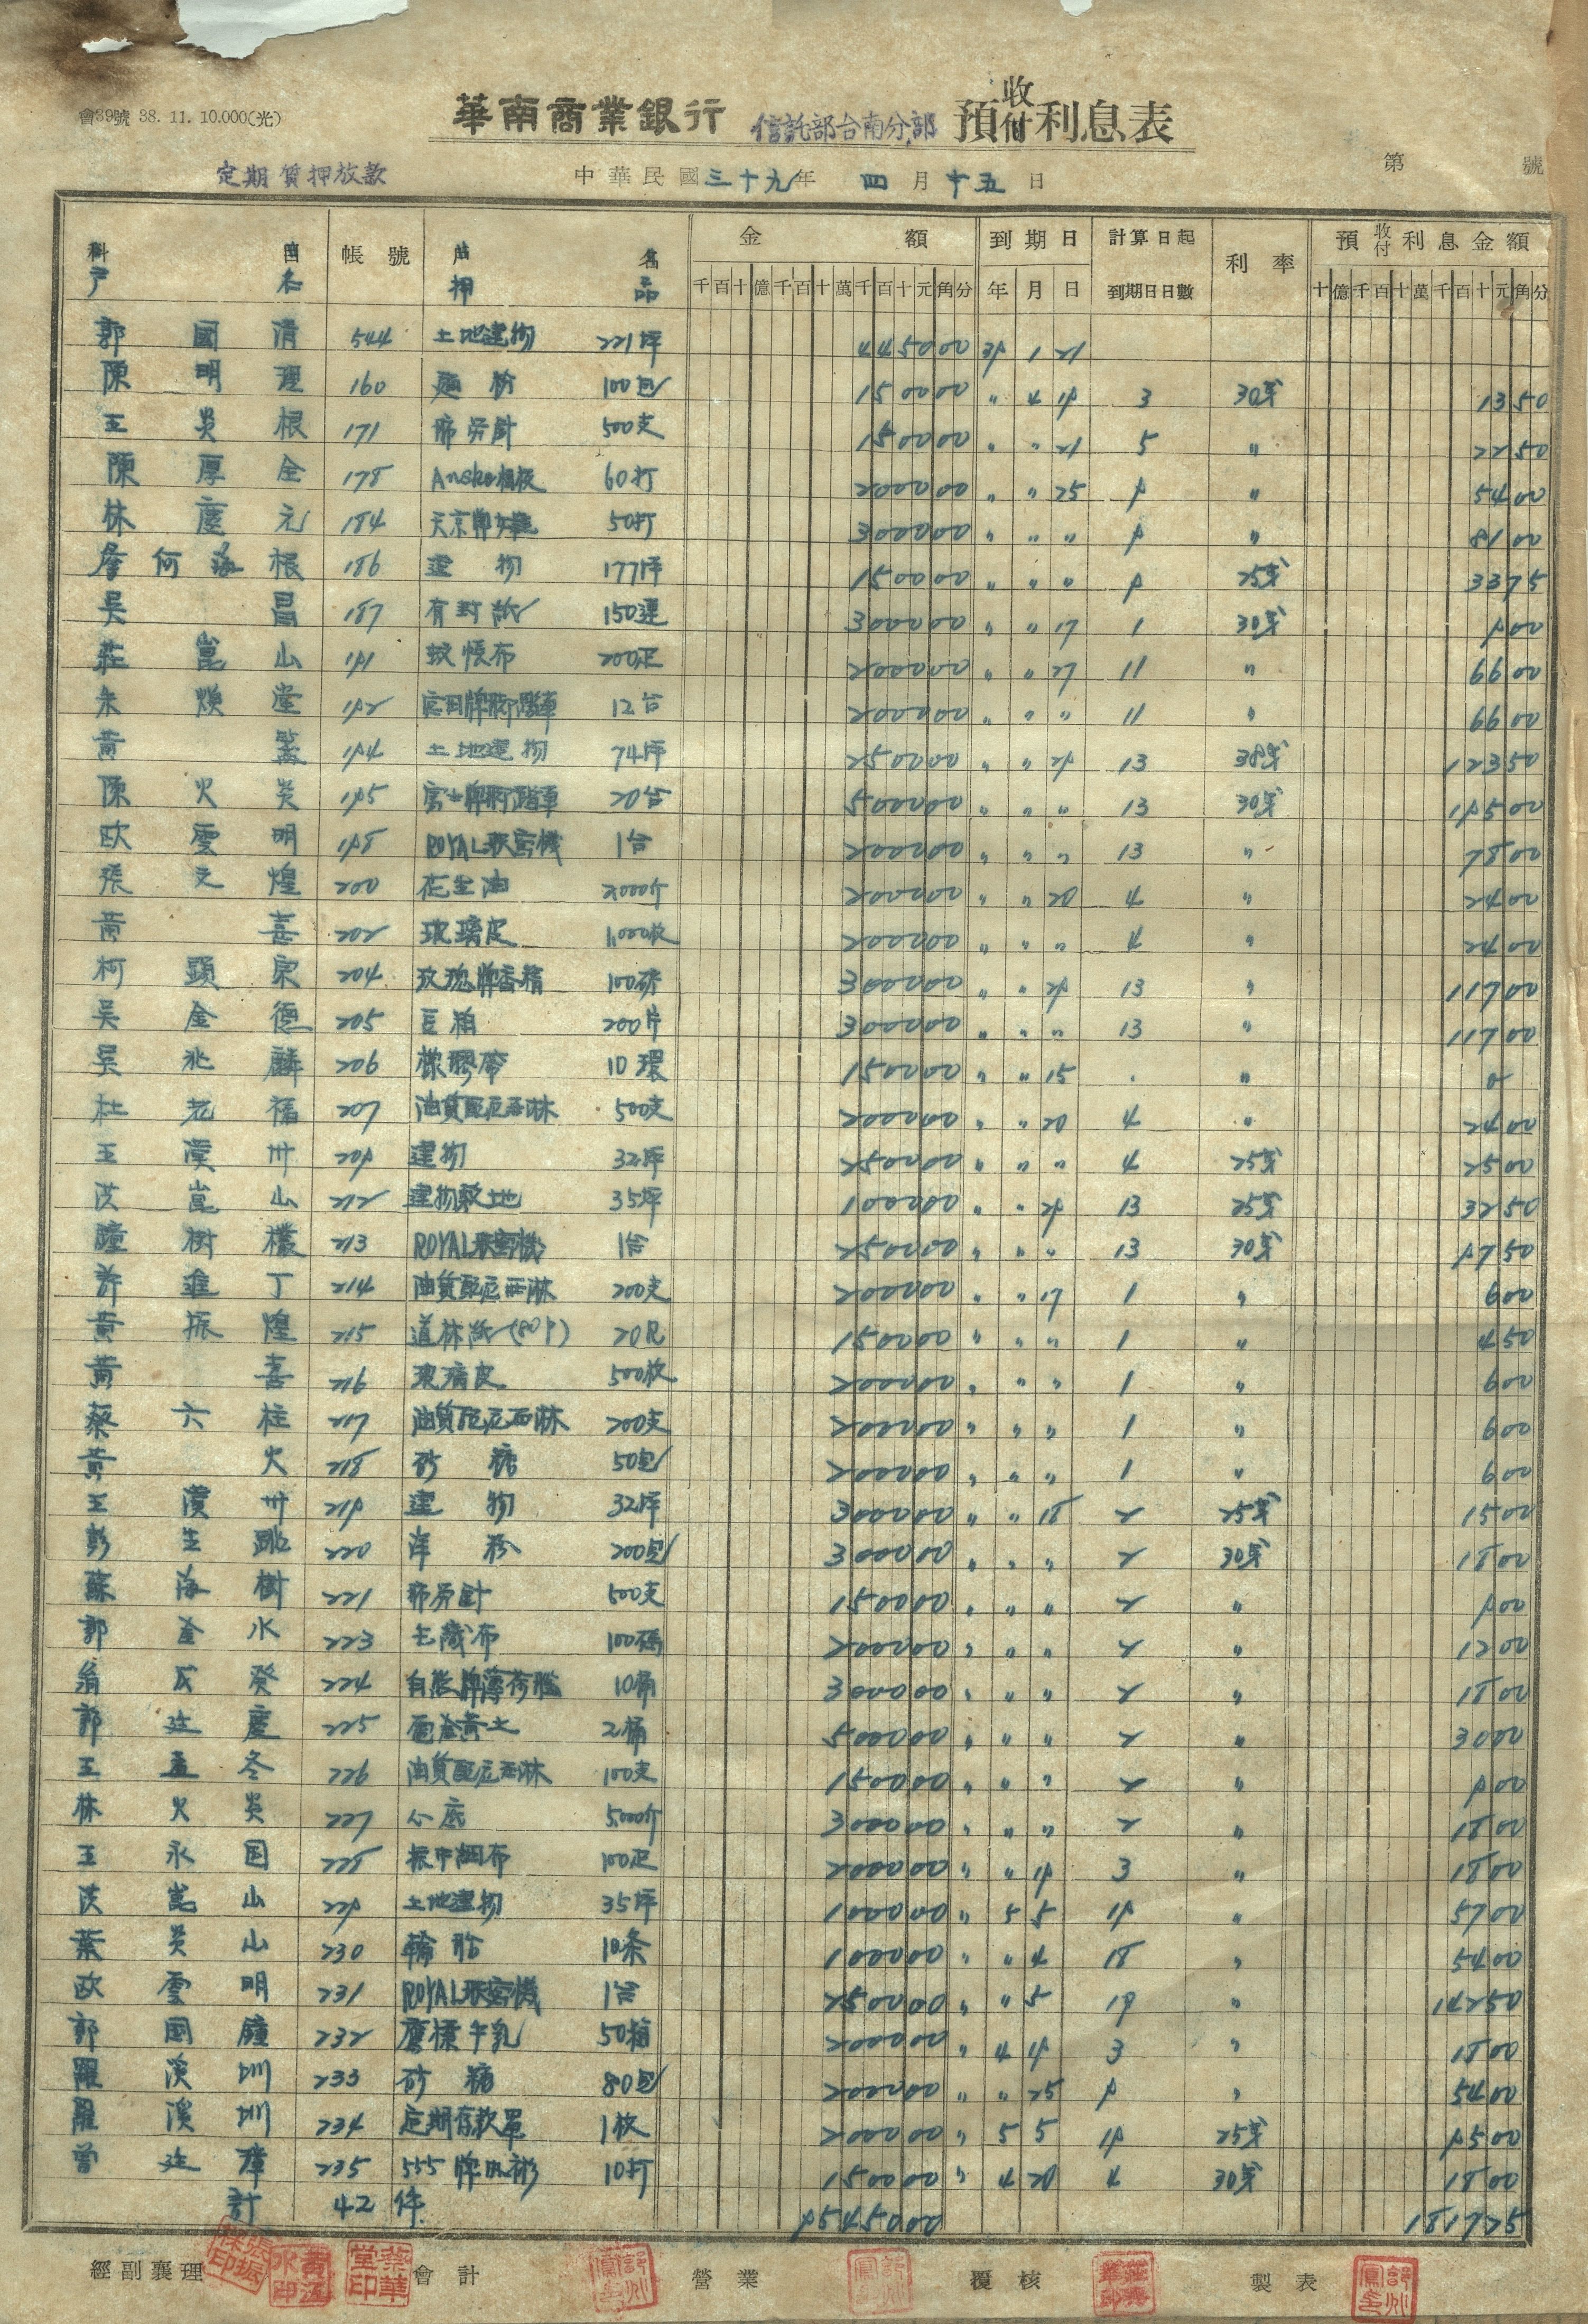 會39號 38. 11. 10.000(光)
華南商業銀行 信託部台南分部 預收付利息表
定期質押放款 中華民國三十九年 四月十五日 第 號
科目 帳號 戶名 金額 到期日 計算日起到期日日數 利率 預收付利息金額
戶名 押品 千百十億千百十萬千百十元角分 年 月 日 十億千百十萬千百十元角分
郭國清 544 土地建物 221坪 445000 39 1 21
陳明理 160 麵粉 100包 150000 〃 4 19 3 30% 1350
王炎根 171 500支 150000 〃 〃 21 5 〃 2250
陳厚全 178 60打 200000 〃 〃 25 9 〃 5400
林慶元 184 50打 300000 〃 〃 〃 9 〃 8100
詹何海根 186 建物 177坪 150000 〃 〃 〃 9 25% 3375
吳昌 187 有封紙 150連 300000 〃 〃 17 1 30% 900
莊崑山 191 蚊帳布 200疋 200000 〃 〃 27 11 〃 6600
朱煥堂 192 富田牌腳踏車 12台 200000 〃 〃 〃 11 〃 6600
黃 194 土地建物 74坪 250000 〃 〃 29 13 38% 12350
陳火炎 195 富士牌腳踏車 20台 500000 〃 〃 〃 13 30% 19500
歐雲明 198 ROYAL 1台 200000 〃 〃 〃 13 〃 7800
張文煌 200 花生油 2,000斤 200000 〃 〃 20 4 〃 2400
黃喜 202 玻璃皮 1,000枚 200000 〃 〃 〃 4 〃 2400
柯頭泉 204 玫瑰牌香精 100磅 300000 〃 〃 29 13 〃 11700
吳金德 205 豆粕 200片 300000 〃 〃 〃 13 〃 11700
吳兆麟 206 橡膠帶 10環 150000 〃 〃 15 . 〃 0
杜老福 207 油質配尼西林 500支 200000 〃 〃 20 4 〃 2400
王漢卅 209 建物 32坪 250000 〃 〃 〃 4 25% 2500
洪崑山 212 建物敷地 35坪 100000 〃 〃 29 13 25% 3250
鐘樹欉 213 ROYAL 1台 250000 〃 〃 〃 13 30% 9750
許進丁 214 油質配尼西林 200支 200000 〃 〃 17 1 〃 600
黃振煌 215 道林紙(80P) 20R 150000 〃 〃 〃 1 〃 450
黃喜 216 玻璃皮 500枚 200000 〃 〃 〃 1 〃 600
蔡六柱 217 油質配尼西林 200支 200000 〃 〃 〃 1 〃 600
黃火 218 砂糖 50包 200000 〃 〃 〃 1 〃 600
王漢卅 219 建物 32坪 300000 〃 〃 18 2 25% 1500
彭生 220 洋粉 200包 300000 〃 〃 〃 2 30% 1800
蘇海樹 221 500支 150000 〃 〃 〃 2 〃 900
郭金水 223 毛織布 100碼 200000 〃 〃 〃 2 〃 1200
翁氏癸 224 10桶 300000 〃 〃 〃 2 〃 1800
郭廷慶 225 2桶 500000 〃 〃 〃 2 〃 3000
王孟冬 226 油質配尼西林 100支 150000 〃 〃 〃 2 〃 900
林火炎 227 心底 5,000斤 300000 〃 〃 〃 2 〃 1800
王永国 228 細布 100疋 200000 〃 〃 19 3 〃 1800
洪崑山 229 土地建物 35坪 100000 〃 5 5 19 〃 5700
葉炎山 230 輪胎 10条 100000 〃 〃 4 18 〃 5400
歐雲明 231 ROYAL 1台 250000 〃 〃 5 19 〃 14250
郭国鐘 232 鷹標牛乳 50箱 200000 〃 4 19 3 〃 1800
羅溪圳 233 砂糖 80包 200000 〃 〃 25 9 〃 5400
羅溪圳 234 定期存款單 1枚 200000 〃 5 5 19 25% 9500
曾廷璋 235 555牌 10打 150000 〃 4 20 4 30% 1800
計 42件 9545000 181725
經副襄理 會計 營業 覆核 製表